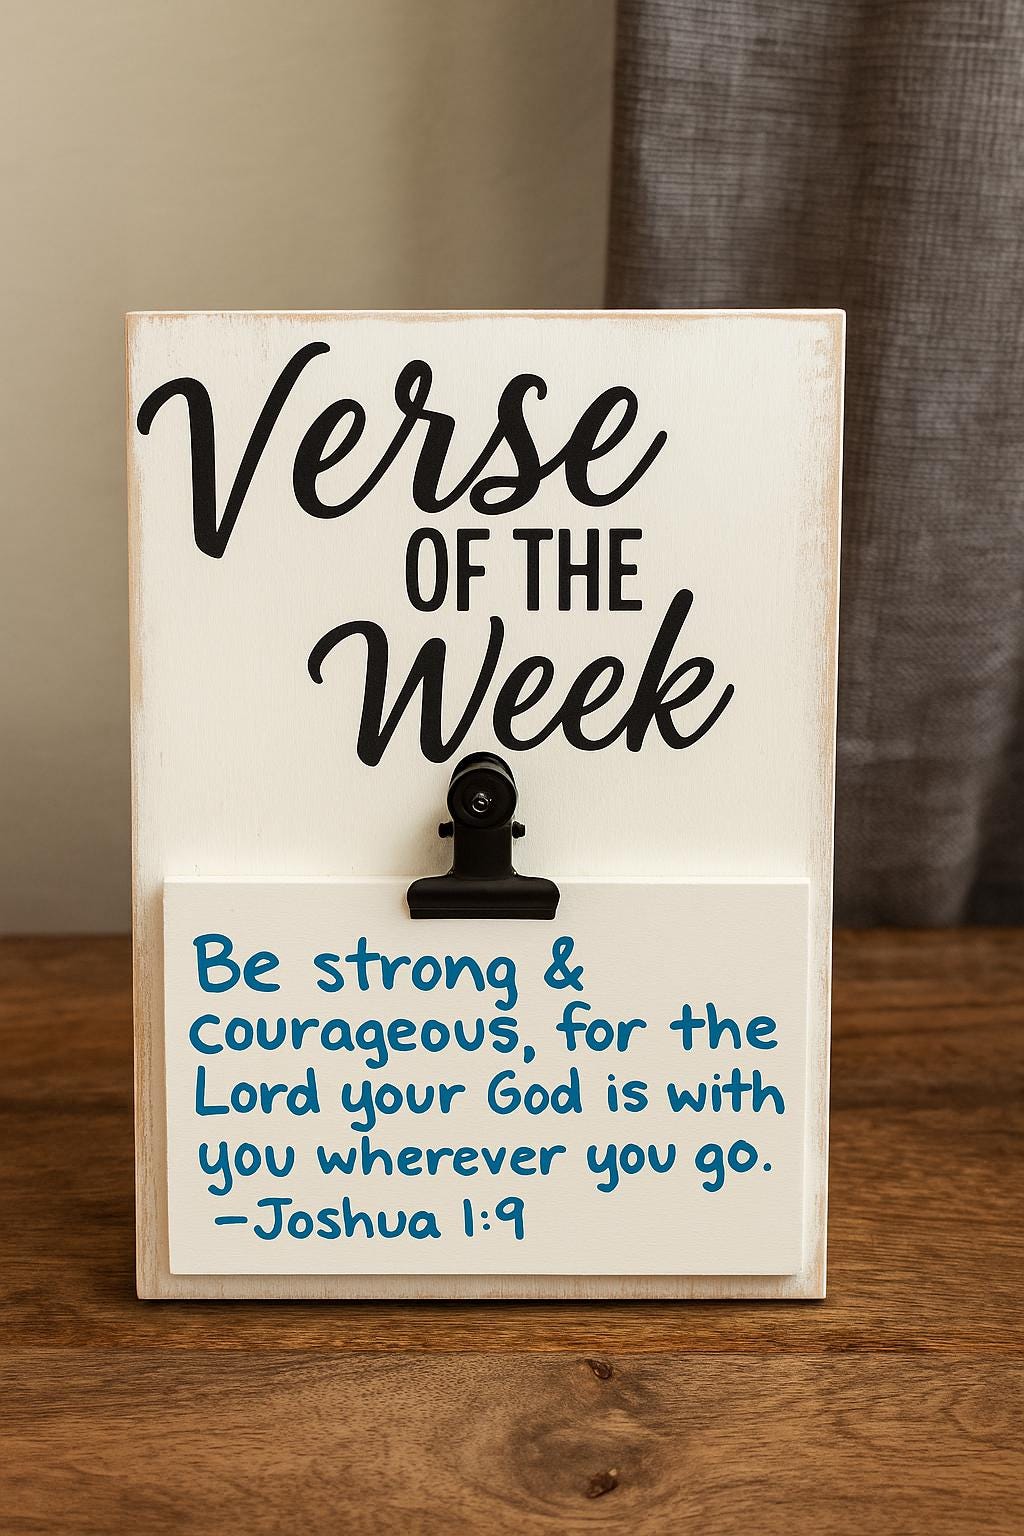 Verse
OF THE
Week
Be strong &
courageous, for the
Lord your God is with
you wherever you go.
-Joshua 1:9